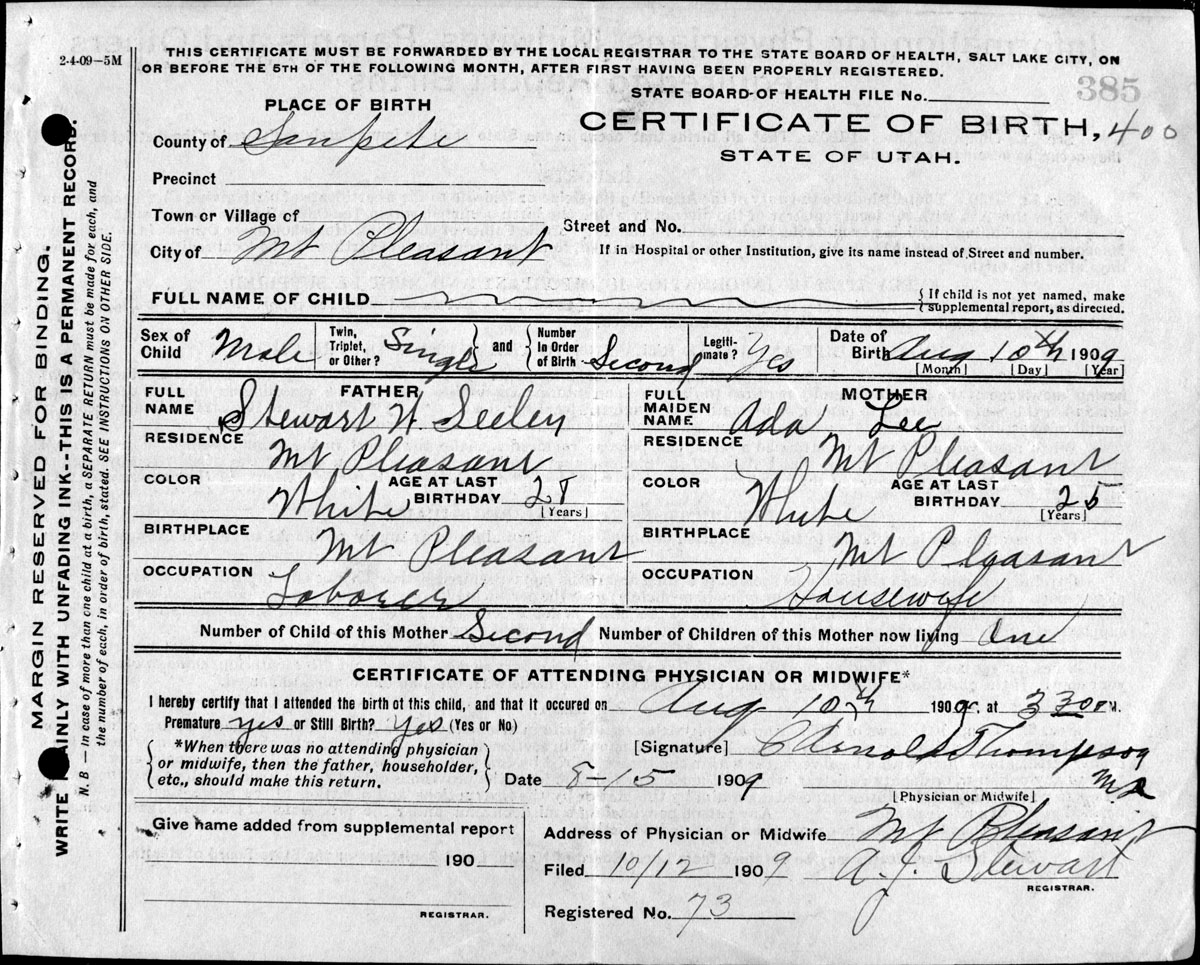 2-4-09-5M
THIS CERTIFICATE MUST BE FORWARDED BY THE LOCAL REGISTRAR TO THE STATE BOARD OF HEALTH, SALT LAKE CITY, ON
OR BEFORE THE 5TH OF THE FOLLOWING MONTH, AFTER FIRST HAVING BEEN PROPERLY REGISTERED.
STATE BOARD OF HEALTH FILE No. 385
PLACE OF BIRTH
CERTIFICATE OF BIRTH, 400
County of Sanpete
STATE OF UTAH.
Precinct
Town or Village of
Street and No.
City of Mt Pleasant
If in Hospital or other Institution, give its name instead of Street and number.
FULL NAME OF CHILD
{ If child is not yet named, make
supplemental report, as directed.
Sex of Child Male
Twin, Triplet, or Other? Single
and
Number in Order of Birth Second
Legiti-mate? Yes
Date of Birth Aug 10th 1909
[Month] [Day] [Year]
FATHER
FULL NAME Stewart H. Seeley
RESIDENCE Mt Pleasant
COLOR White
AGE AT LAST BIRTHDAY 28
[Years]
BIRTHPLACE Mt Pleasant
OCCUPATION Laborer
MOTHER
FULL MAIDEN NAME Ada Lee
RESIDENCE Mt Pleasant
COLOR White
AGE AT LAST BIRTHDAY 25
[Years]
BIRTHPLACE Mt Pleasant
OCCUPATION Housewife
Number of Child of this Mother Second Number of Children of this Mother now living One
CERTIFICATE OF ATTENDING PHYSICIAN OR MIDWIFE*
I hereby certify that I attended the birth of this child, and that it occured on Aug 10th 1909, at 3 30 P M.
Premature yes or Still Birth? Yes (Yes or No)
*When there was no attending physician
or midwife, then the father, householder,
etc., should make this return.
[Signature] C Arnold Thompson
MD
Date 8-15 1909
[Physician or Midwife]
Give name added from supplemental report
190
REGISTRAR.
Address of Physician or Midwife Mt Pleasant
Filed 10/12 1909 A. J. Stewart
REGISTRAR.
Registered No. 73
MARGIN RESERVED FOR BINDING.
WRITE PLAINLY WITH UNFADING INK--THIS IS A PERMANENT RECORD.
N. B — In case of more than one child at a birth, a SEPARATE RETURN must be made for each, and
the number of each, in order of birth, stated. SEE INSTRUCTIONS ON OTHER SIDE.